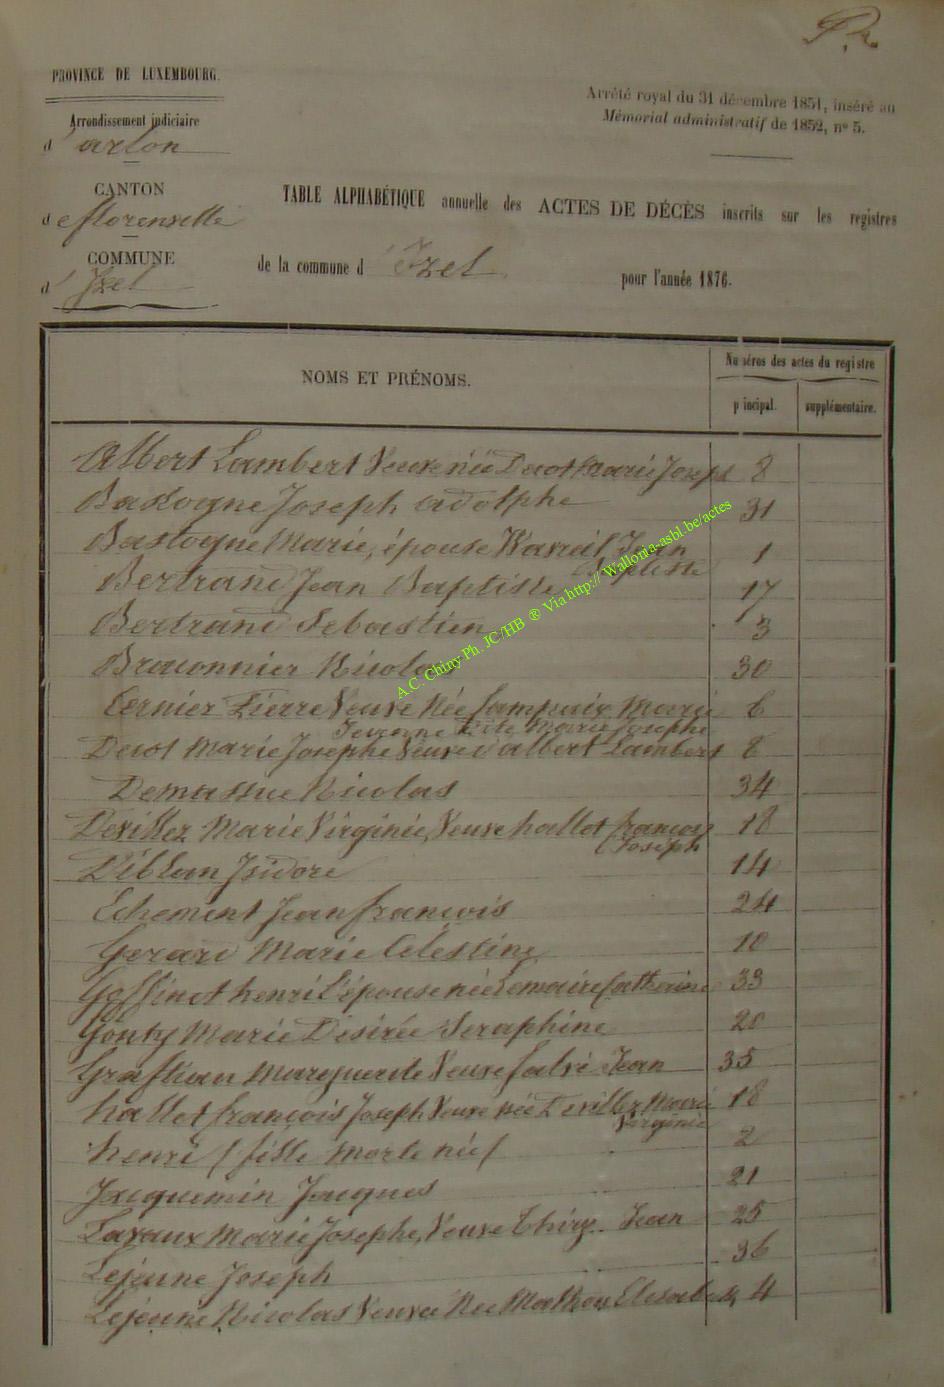 PROVINCE DE LUXEMBOURG.
Arrondissement judiciaire
d'arlon
CANTON
de florenville
COMMUNE
d'Izel
Arrêté royal du 31 décembre 1851, inséré au
Mémorial administratif de 1852, n° 5.
TABLE ALPHABÉTIQUE annuelle des ACTES DE DÉCÈS inscrits sur les registres
de la commune d'Izel pour l'année 1876.
NOMS ET PRÉNOMS.
Numéros des actes du registre
principal. supplémentaire.
Albert Lambert Veuve née Decot Marie Joseph 8
Bastogne Joseph adolphe 31
Bastogne Marie, épouse Jean 1
Baptiste
Bertrand Jean Baptiste 17
Bertrand Sebastien 3
Braconnier Nicolas 30
Cernier Pierre Veuve Née Marie 6
dite Marie Josephe
Decot Marie Josephe Veuve d'albert Lambert 8
Demassue Nicolas 34
Devillez Marie Virginie, Veuve hallot françois 18
Joseph
Déblan Isidore 14
Echement Jean françois 24
Gerard Marie Célestine 10
Goffinet henri l'épouse née Lemaire Catherine 33
Gouty Marie Desirée Seraphine 20
Marguerite Veuve Jean 35
hallot françois Joseph Veuve née Devillez Marie 18
Virginie
henri (fille morte née) 2
Jacquemin Jacques 21
Lavaux Marie Josephe, Veuve Thiry Jean 25
Lejeune Joseph 36
Lejeune Nicolas Veuve Née Elisabeth 4
A.C. Chiny Ph. JC/HB ® Via http:// Wallonia-asbl.be/actes